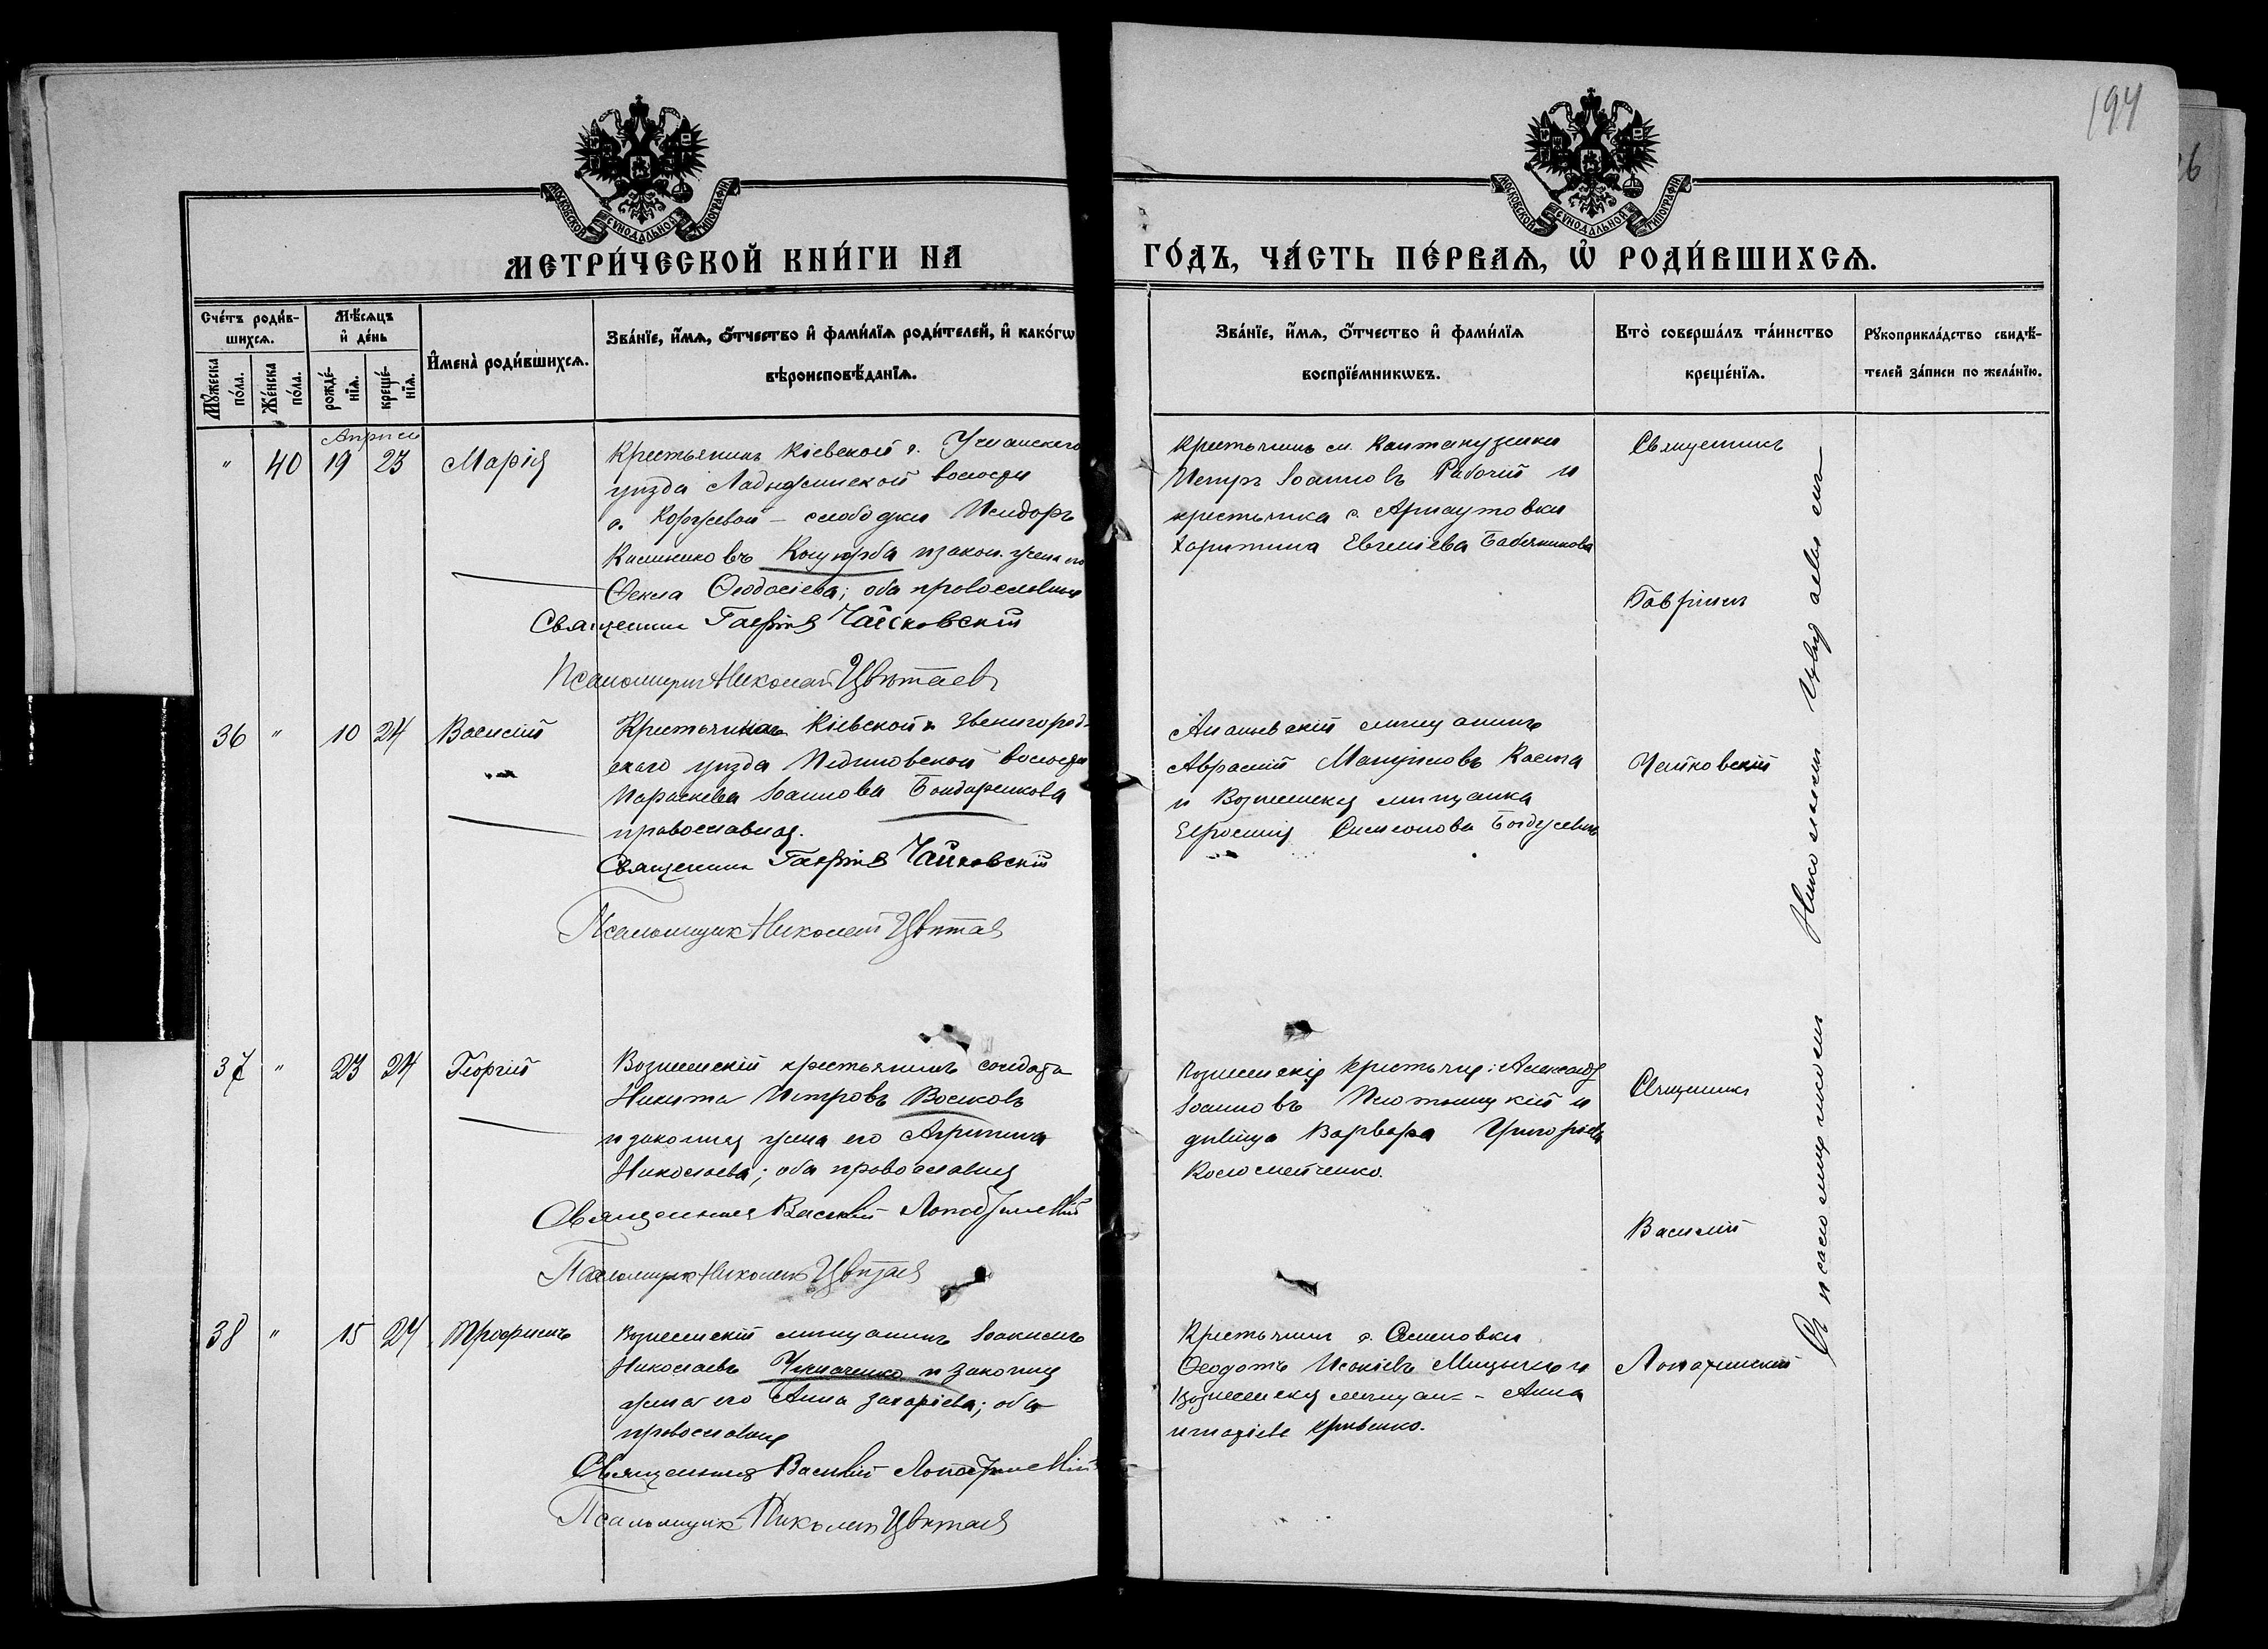 194
26
МОСКОВСКОЙ СѴНОДАЛЬНОЙ ТИПОГРАФІИ
МОСКОВСКОЙ СѴНОДАЛЬНОЙ ТИПОГРАФІИ
МЕТРИ́ЧЕСКОЙ КНИ́ГИ НА
ГО́ДЪ, ЧА́СТЬ ПЕ́РВАѦ, Ѡ҆ РОДИ́ВШИХСѦ.
Сче́тъ роди́в-
шихсѧ.
Мѣ́сѧцъ
и҆ де́нь
Мꙋ́жеска
по́ла.
Же́нска
по́ла.
рожде́-
нїѧ.
креще́-
нїѧ.
И҆мена̀ роди́вшихсѧ.
Зва́нїе, и҆́мѧ, ѻ҆́тчество и҆ фами́лїѧ роди́телей, и҆ како́гѡ
вѣроисповѣ́данїѧ.
Зва́нїе, и҆́мѧ, ѻ҆́тчество и҆ фами́лїѧ
воспрїе́мникѡвъ.
Кто̀ соверша́лъ та́инство
креще́нїѧ.
Рꙋкоприкла́дство свидѣ́-
телей за́писи по жела́нїю.
Апрель
" 40 19 23 Марія
Крестьянинъ Кіевской г. Уманскаго
уѣзда Ладыжинской волости
с. Коржевой - слободки Исидоръ
Калиниковъ Коцюрба и закон. жена его
Ѳекла Ѳеодосіева; оба православные
Священникъ Гавріилъ Чайковскій
Псаломщикъ Николай Цвѣтаевъ
Крестьянинъ м. Кантакузинки
Петръ Іоанновъ Рабочій и
крестьянка с. Арнаутовки
Харитина Евгеніева Бабочникова
Священникъ
Гавріилъ
36 " 10 24 Василій
Крестьянка Кіевской г. Звенигород-
скаго уѣзда Пединовской волости
Параскева Іоаннова Бондаренкова
православная.
Священникъ Гавріилъ Чайковскій
Псаломщикъ Николай Цвѣтаевъ
Ананьевскій мѣщанинъ
Аврамій Мануиловъ Коста
и Вознесенская мѣщанка
Евросинія Симеонова
Чайковскій
37 " 23 24 Георгій
Вознесенскій крестьянинъ солдатъ
Никита Петровъ Волковъ
и законная жена его Агрипина
Николаева; оба православные
Священникъ Василій Лопатинскій
Псаломщикъ Николай Цвѣтаевъ
Вознесенскіе крестьяне: Александръ
Іоанновъ Плотницкій и
дѣвица Варвара Григорьева
Коломейченко.
Священникъ
Василій
38 " 15 24 Трофимъ
Вознесенскій мѣщанинъ Іоакимъ
Николаевъ Игнатенко и законная
жена его Анна Захаріева; оба
православные
Священникъ Василій Лопатинскій
Псаломщикъ Николай Цвѣтаевъ
Крестьянинъ с. Семеновки
Ѳеодотъ Исакіевъ и
Вознесенская мѣщан. - Анна
Игнатіева Кривенко.
Лопатинскій
Съ псаломщикомъ Николаемъ Цвѣтаевымъ